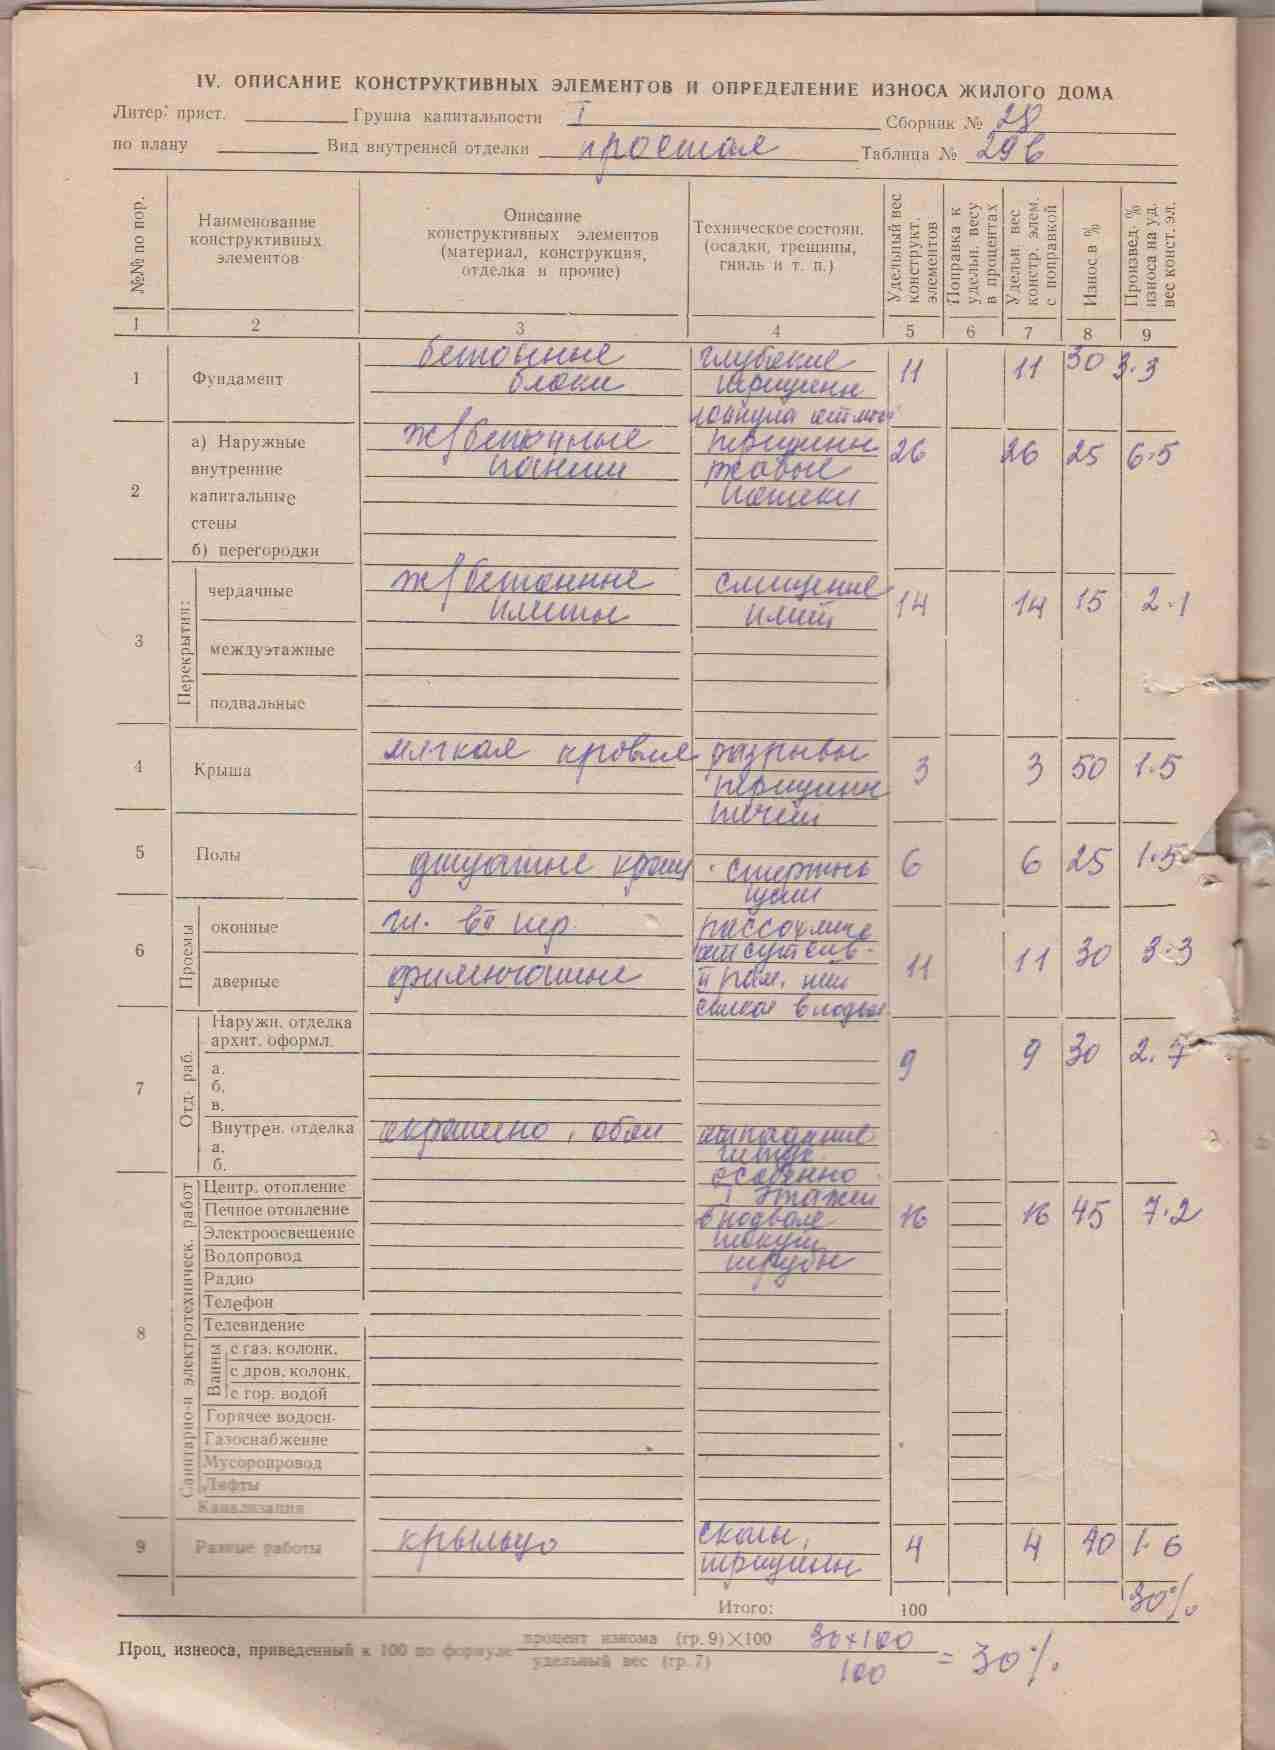 IV. ОПИСАНИЕ КОНСТРУКТИВНЫХ ЭЛЕМЕНТОВ И ОПРЕДЕЛЕНИЕ ИЗНОСА ЖИЛОГО ДОМА
Литер: прист. Группа капитальности I Сборник № 28
по плану Вид внутренней отделки простая Таблица № 29в
№№ по пор.
Наименование конструктивных элементов
Описание конструктивных элементов (материал, конструкция, отделка и прочие)
Техническое состоян. (осадки, трещины, гниль и т. п.)
Удельный вес конструкт. элементов
Поправка к удельн. весу в процентах
Удельн. вес констр. элем. с поправкой
Износ в %
Произвед. % износа на уд. вес конст. эл.
1 2 3 4 5 6 7 8 9
1 Фундамент бетонные глубокие 11 11 30 3.3
блоки трещины
а) Наружные ж/бетонные трещины 26 26 25 6.5
внутренние панели ржавые
2 капитальные потеки
стены
б) перегородки
3 Перекрытия:
чердачные ж/бетонные смещение 14 14 15 2.1
плиты плит
междуэтажные
подвальные
4 Крыша мягкая кровля разрывы 3 3 50 1.5
трещины
течет
5 Полы дощатые краш. 6 6 25 1.5
щели
6 Проемы
оконные рассохлись 11 11 30 3.3
дверные филенчатые
7 Отд. раб.
Наружн. отделка 9 9 30 2.7
архит. оформл.
а.
б.
в.
Внутрен. отделка окрашено, обои отпадание
а. штук.
б. особенно
8 Санитарно-и электротехническ. работ
Центр. отопление I этажи
Печное отопление в подвале 16 16 45 7.2
Электроосвещение текут
Водопровод трубы
Радио
Телефон
Телевидение
Ванны с газ. колонк.
с дров. колонк.
с гор. водой
Горячее водосн-
Газоснабжение
Мусоропровод
Лифты
Канализация
9 Разные работы крыльцо сколы, 4 4 40 1.6
трещины
30%
Итого: 100
Проц. изнеоса, приведенный к 100 по формуле процент изнома (гр. 9)×100 / удельный вес (гр. 7) 30×100 / 100 = 30%.